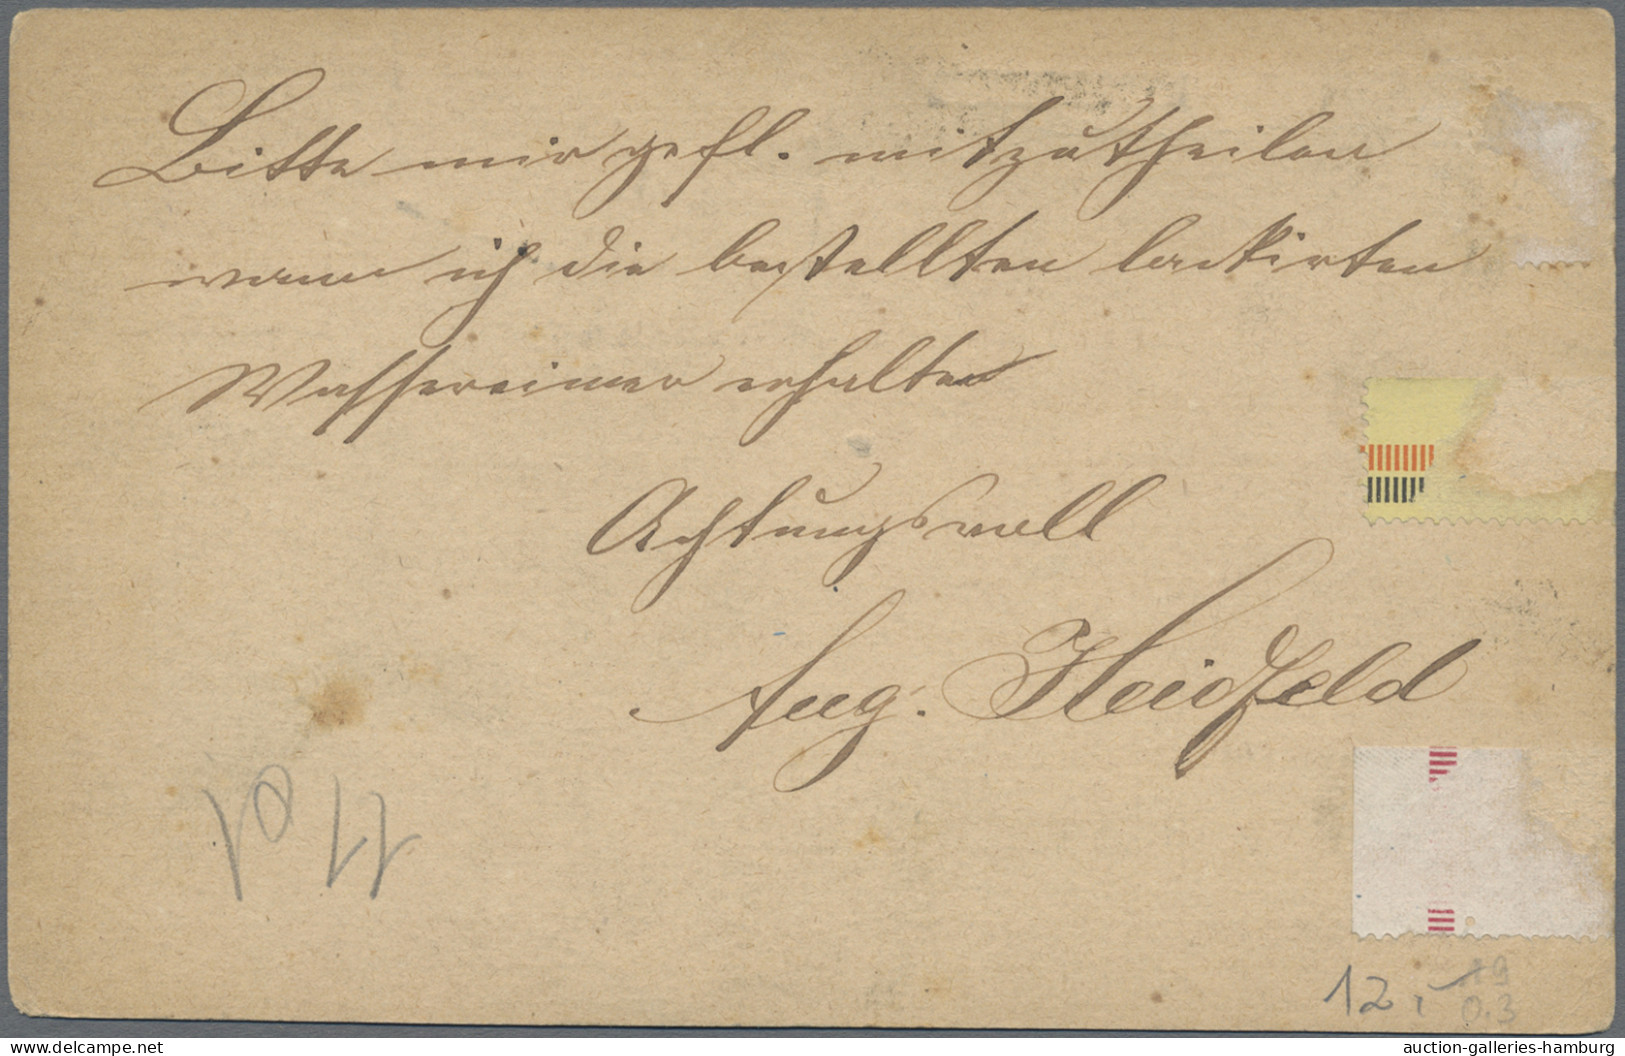 Bitte mir gefl. mitzutheilen
wann ich die bestellten lackirten
Wassereimer erhalte
Achtungsvoll
Aug. Heidfeld
12,
19
0.3
delcampe.net
auction-galleries-hamburg